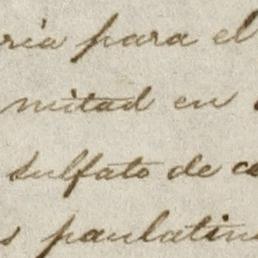 ria para el
mitad en
sulfato de c
s paulatin